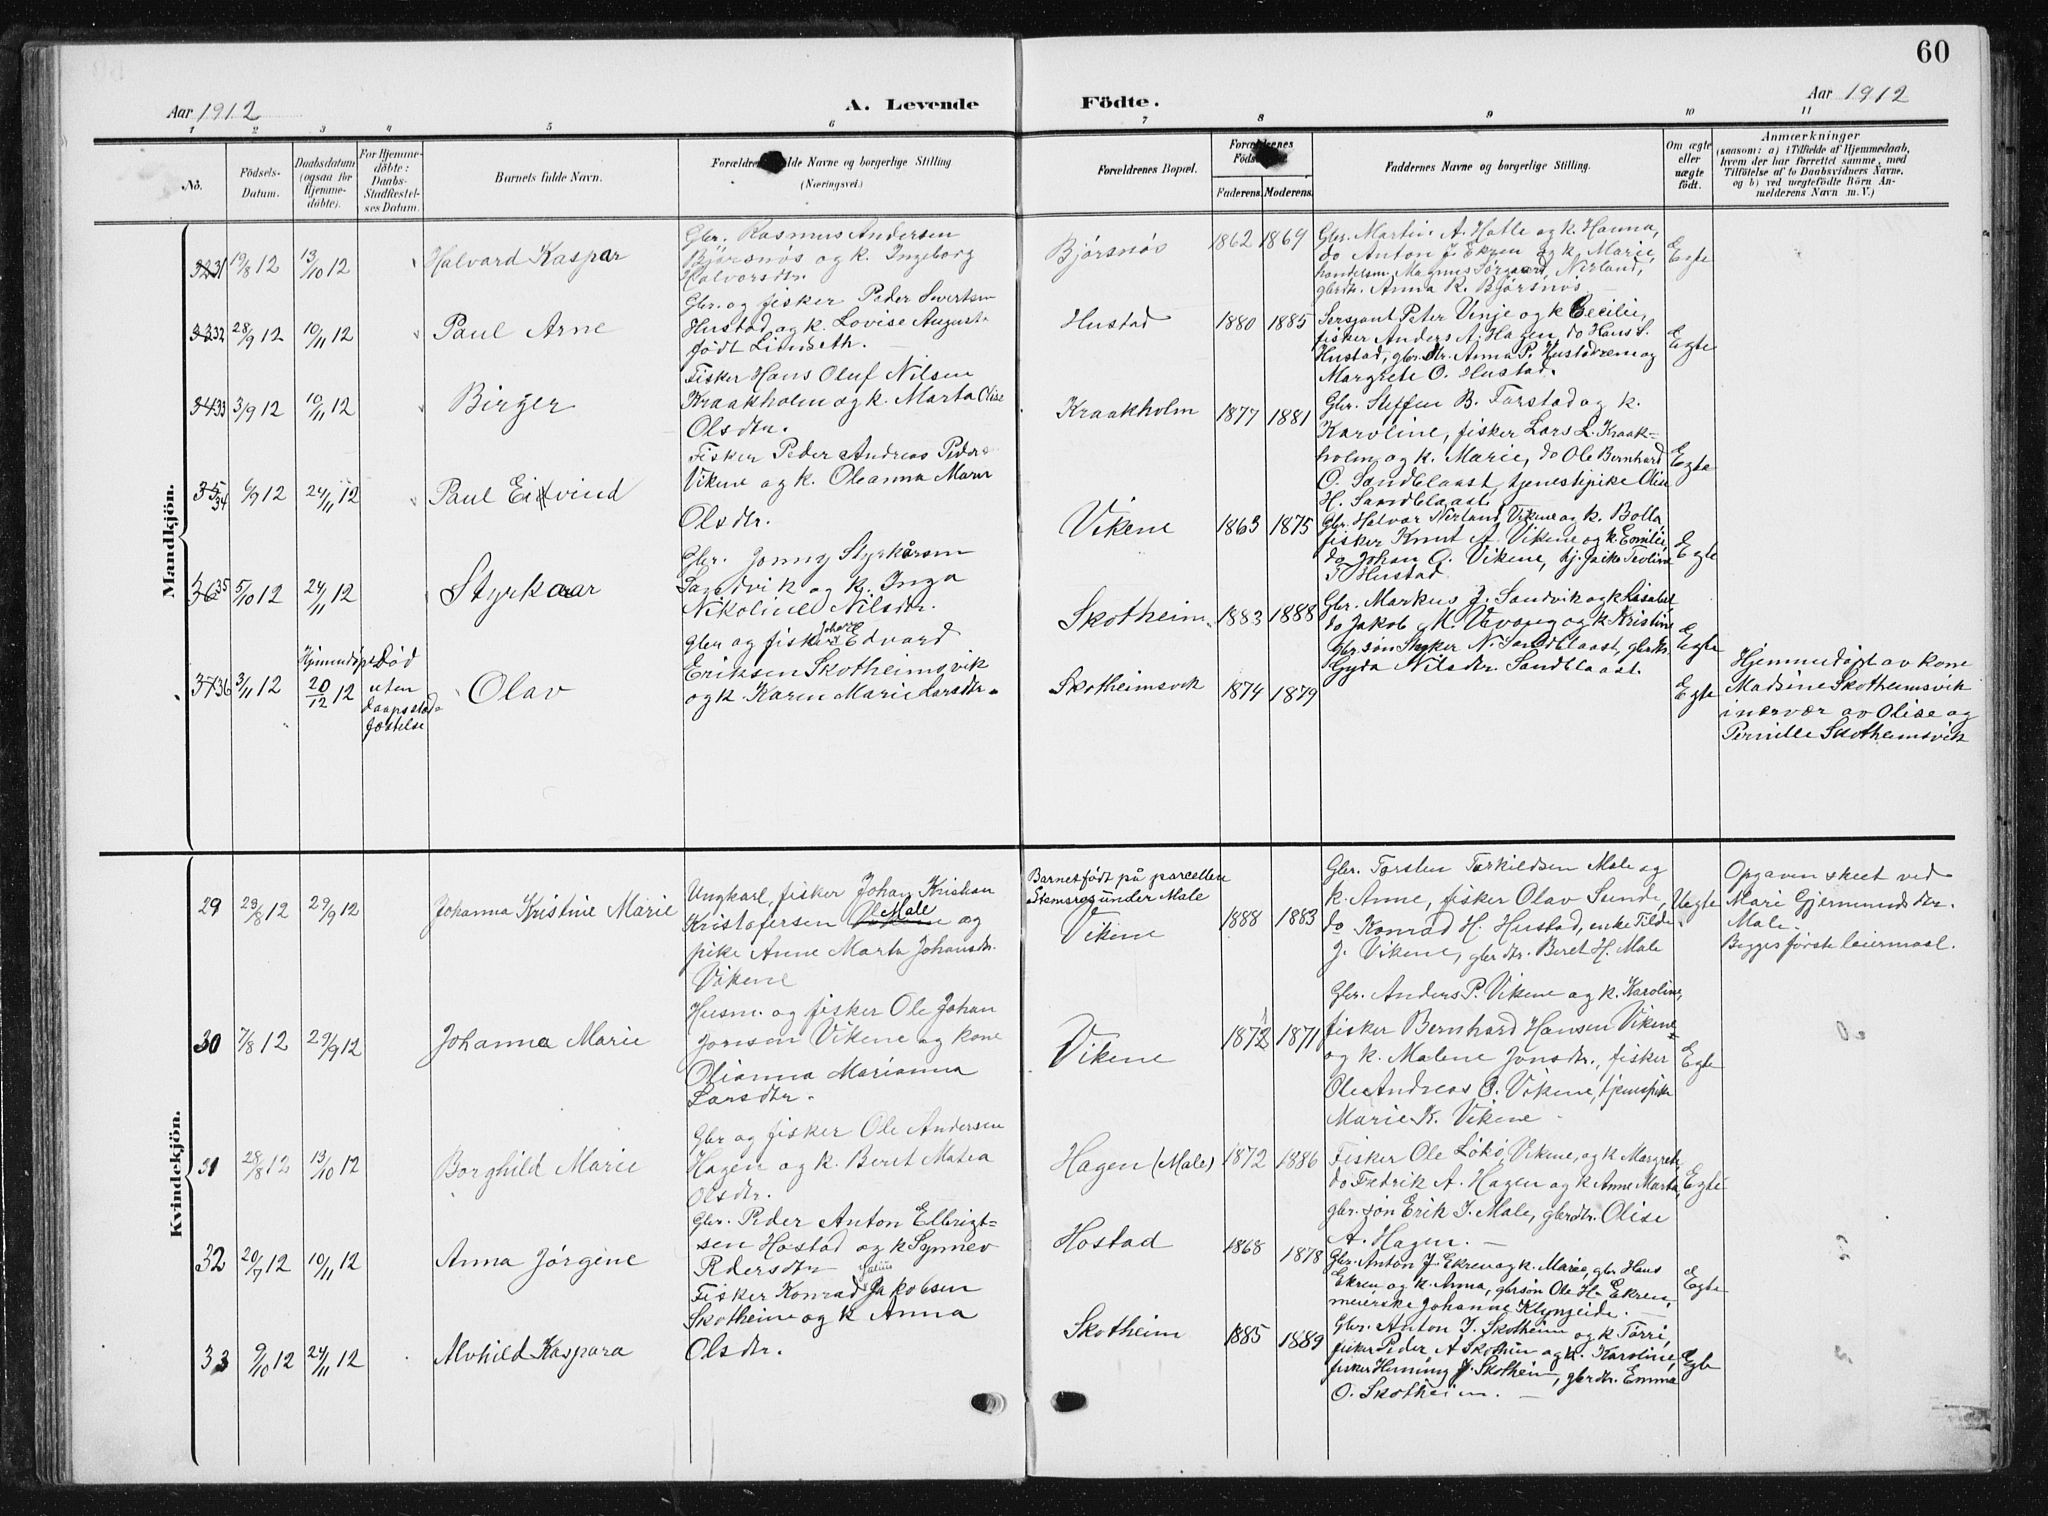 60
Aar 1912
A. Levende
Födte.
Aar 1912
1 2 3 4 5 6 7 8 9 10 11
No.
Födsels-
Datum.
Daabsdatum
(ogsaa for
Hjemme-
döbte).
For Hjemme-
döbte:
Daabs-
Stadfæstel-
ses Datum.
Barnets fulde Navn.
Navne og borgerlige Stilling
(Næringsvei.)
Forældrenes Bopæl.
Faderens. Moderens.
Faddernes Navne og borgerlige Stilling.
Om ægte
eller
uægte
födt.
Anmærkninger
(saasom: a) i Tilfælde af Hjemmedaab,
hvem der har forrettet samme, med
Tilföielse af to Daabsvidners Navne.
og b) ved uægtefödte Börn An-
melderens Navn m. V.)
Mandkjön.
3231 19/8 12 13/10 12 Halvard Kaspar
Gbr. Rasmus Andersen
Bjørsnøs og k. Ingeborg
Halvorsdtr.
Bjørsnøs 1862 1869
Gbr. Martin A. Hatle og k. Hanna,
do Anton J. Ekren og k. Marie,
handelsm. Magnus Sørgaard, Nerland,
gbrdtr. Anna R. Bjørsnøs
Egte
3332 28/9 12 10/11 12 Paul Arne
Gbr. og fisker Peder Sivertsen
Hustad og k. Lovise August.
født Lindseth.
Hustad 1880 1885
Sersjant Peter Vinje og k Cecilie,
fisker Anders A. Hagen, do Hans S.
Hustad, gbr.dtr. Anna P. Hustadxem og
Margrete O. Hustad.
Egte
3433 3/9 12 10/11 12 Birger
Fisker Hans Oluf Nilsen
Kraakholm og k. Marta Olise
Olsdtr.
Kraakholm 1877 1881
Gbr. Steffen B. Farstad og k.
Karoline, fisker Lars L. Kraak-
holm og k. Marie, do Ole Bernhard
O. Sandblaast, tjenestepike Olise
H. Sandblaast.
Egte
3534 6/9 12 24/11 12 Paul Eivind
Fisker Peder Andreas Peders.
Vikene og k. Oleanna Marie
Olsdtr.
Vikene 1863 1875
Gbr. Halvor Nerland, Vikene og k. Bolla,
fisker Knut A. Vikene og k. Emilie,
do Johan O. Vikene, tj. pike Teoline
T. Hustad
Egte
3635 5/10 12 24/11 12 Styrkaar
Gbr. Jonny Styrkårsen
Sandvik og k. Inga
Nikoline Nilsdtr.
Skotheim. 1883 1888
Gbr. Markus J. Sandvik og k Lisabet,
do Jakob M. Vevang og k Kristine
gbr.søn Styrker N. Sandblaast, gbrdtr.
Gyda Nilsdtr. Sandblaast.
Egte
3736 3/11 12 Hjemmedøpt 20/12 12
Død
uten
daapsstad-
fæstelse
Olav
Gbr og fisker Johan Edvard
Eriksen Skotheimsvik
og k. Karen Marie Larsdtr.
Skotheimsvik 1874 1879
Egte
Hjemmedøpt av kone
Madsine Skotheimsvik
i nærvær av Olise og
Pernille Skotheimsvik
Kvindekjön.
29 23/8 12 29/9 12 Johanna Kristine Marie
Ungkarl, fisker Johan Kristian
Kristofersen Male og
pike Anne Marta Johansdtr.
Vikene
Barnet født på parcellen
Stemsros under Male
Vikene 1888 1883
Gbr. Torsten Torkildsen Male og
k. Anne, fisker Olav Sunde,
do Konrad H. Hustad, enke Tilde
J. Vikene, gbr dtr. Beret H. Male
Uegte
Opgaven skeet ved
Mari Gjermundsdtr.
Male.
Begges første leiermaal.
30 7/8 12 29/9 12 Johanna Marie
Husm. og fisker Ole Johan
Jonsen Vikene og kone
Olianna Marianna
Larsdtr.
Vikene 1872 1871
Gbr. Anders P. Vikene og k. Karoline,
fisker Bernhard Hansen Vikene
og k. Malene Jonsdtr., fisker
Ole Andreas O. Vikene, tjenespike
Marie K. Vikene
Egte
31 28/8 12 13/10 12 Borghild Marie
Gbr og fisker Ole Andersen
Hagen og k. Beret Matea
Olsdtr.
Hagen (Male) 1872 1886
Fisker Ole Løkø, Vikene, og k Margrete
do Fredrik A. Hagen og k Anne Marta,
gbr. søn Erik I. Male, gbrdtr. Olise
A. Hagen.
Egte
32 20/7 12 10/11 12 Anna Jørgine
Gbr. Peder Anton Ellevigt-
sen Hostad og k Synnev
Pedersdtr
Hostad 1868 1878
Gbr. Anton J. Ekren og k. Marie, gbr. Hans
Ekren og k. Anna, gbrsøn Ole H. Ekren,
meierske Johanne Klyngeide.
Egte
33 9/10 12 24/11 12 Alvhild Kaspara
Fisker Konrad Julius Jakobsen
Skotheim og k Anna
Olsdtr.
Skotheim 1885 1889
Gbr. Anton J. Skotheim og k Torri,
fisker Peder A Skotheim og k. Karoline,
fisker Henning J. Skotheim, gbrdtr. Emma
O. Skotheim.
Egte